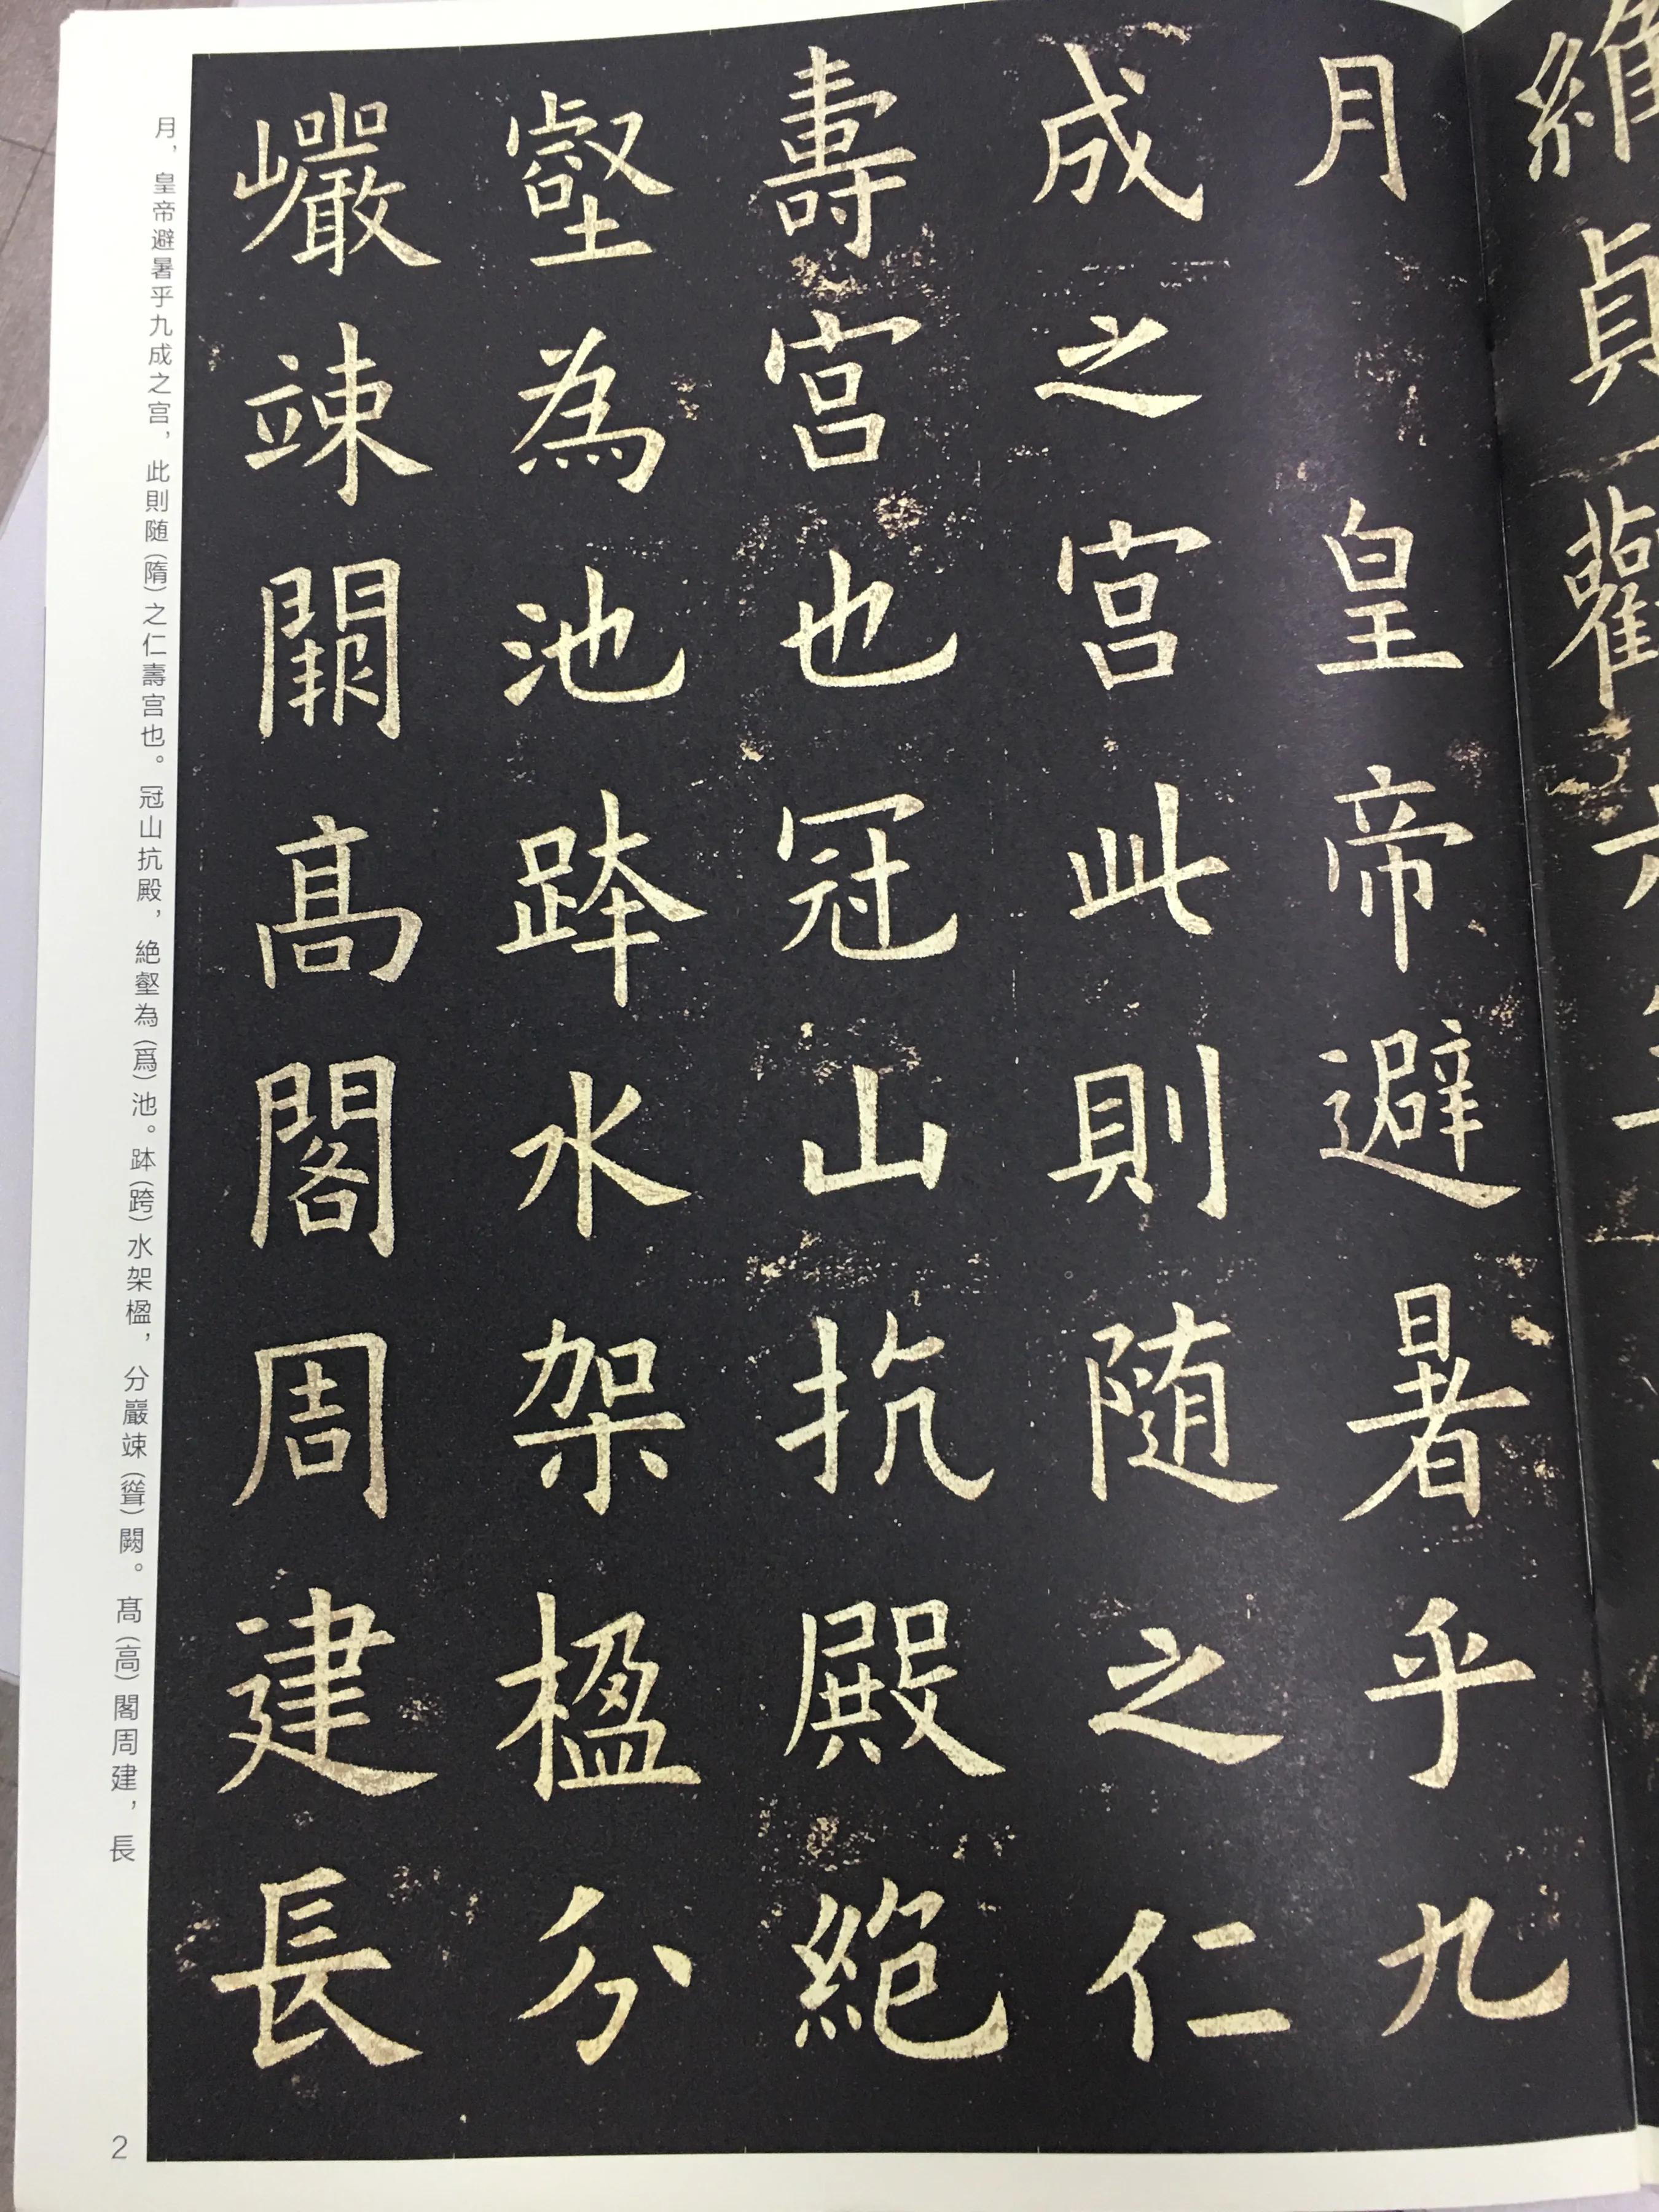 維貞觀六年
月皇帝避暑乎九
成之宮此則随之仁
壽宮也冠山抗殿絶
壑為池跨水架楹分
巖竦闕髙閣周建長
月，皇帝避暑乎九成之宮，此則随（隋）之仁壽宮也。冠山抗殿，絶壑為（爲）池。跨（跨）水架楹，分巖竦（聳）闕。髙（高）閣周建，長
2